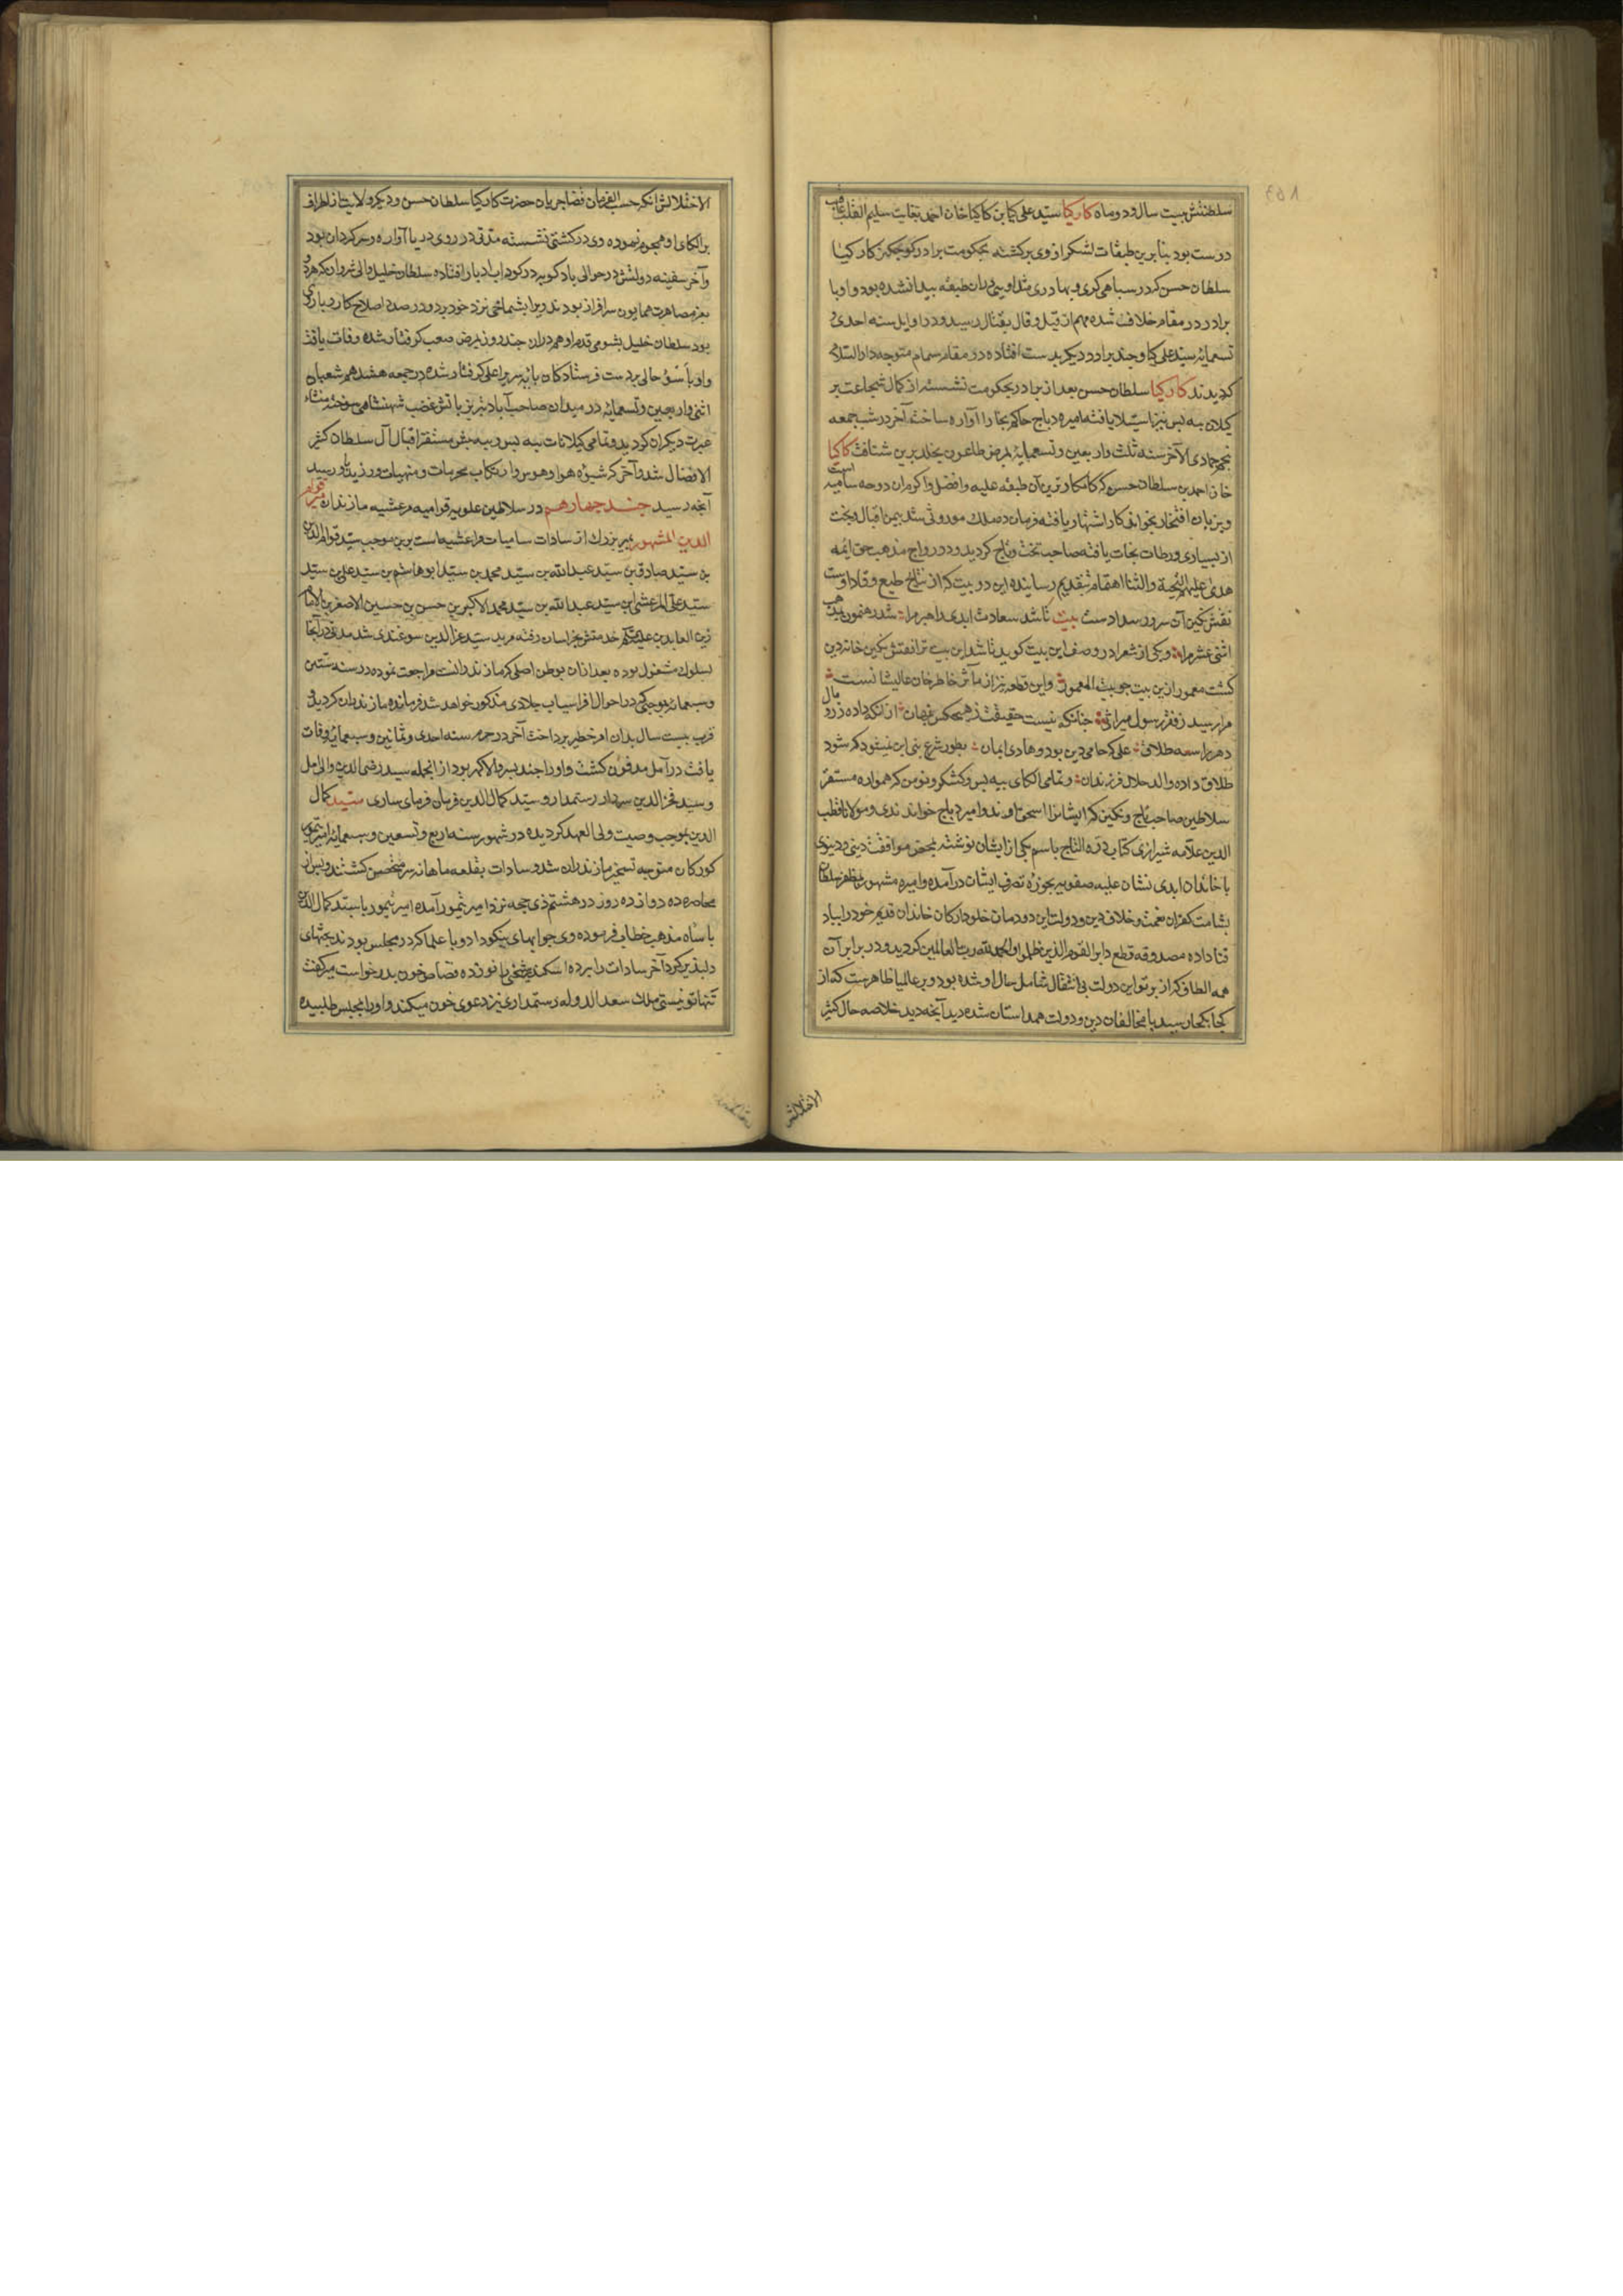 سلطنتش بیست سال و دو ماه کارکیا سید علی کیا بن کارکیا خان احمد بغایت سلیم القلب
درست بود بنابرین طبقات لشکر از وی برکشته بحکومت برادر کوچکتر کارکیا
سلطان حسن که در سپاهی کری و بهادری مثل اویی دران طبقه پیدا نشده بود و او با
برادر در مقام خلاف شده مهم از قیل و قال بقتال رسید و در اوایل سنه احدی و
تسعمایه سید علی کیا و چند برادر دیکر بدست افتاده در مقام سمام متوجه دار السلام
کردیدند کارکیا سلطان حسن بعد از برادر بحکومت نشسته از کمال شجاعت بر
کیلان بیه پس نیز استیلا یافته امیره دباج حاکم بخارا آواره ساخت آخر در شب جمعه
پنجم جمادی الآخر سنه ثلث و اربعین و تسعمایه بمرض طاعون بخلد برین شتافت کارکیا
خان احمد بن سلطان حسن که کامکارترین آن طبقه علیه و افضل و اکرم ان دوحه سامیه است
و بزبان افتخار بخوانی کار اشتهار یافته فرمان ده ملک موروثی شد بیمن اقبال و بخت
از بسیاری ورطات نجات یافته صاحب تخت و تاج کردید و در رواج مذهب حق ایمه
هدی علیهم التحیة والثنا اهتمام بتقدیم رسانیده این دو بیت که از نتایج طبع وقاد اوست
نقش نکین آن سرور سدادست بیت تا شد سعادت ابدی راهبر مرا شد رهنمون بمذهب
اثنی عشر مرا و یکی از شعرا در وصف این بیت کوید تا شد این بیت ترا نقش نکین خانه دین
کشت معمور ازین بیت چو بیت المعمور و این قطعه نیز از مآثر خاطر خان عالیشانست
مرا رسید ز فقر رسول میراثی چنانکه نیست حقیقت ز هیچکس پنهان از انکه داده زر و مال
دهر را سه طلاق علی که حامی دین بود و هادی ایمان بطور شرع نبی این نمیشود که شود
طلاق داده والد حلال فرزندان و تمامی الکای بیه پس و کشکر و تومن که همواره مستقر
سلاطین صاحب تاج و نکین که ایشانرا اسحق وند و امیره دباج خوانند ندی و مولانا قطب
الدین علامه شیرازی کتاب درة التاج باسم یکی از ایشان نوشته بمحض موافقت دینی و دنیوی
با خاندان ابدی نشان علیه صفویه بحوزه تصرف ایشان درآمده و امیره مشهور بمظفر سلطان
بشامت کفران نعمت و خلاف دین و دولت این دودمان خلود ارکان خاندان قدیم خود را بباد
فنا داده مصدوقه فقطع دابر القوم الذین ظلموا والحمد لله رب العالمین کردید و در برابر آن
همه الطاف که از پرتو این دولت بی انتقال شامل حال او شده بود و بر عالمیان ظاهرست که از
کجا بکجا رسید با مخالفان دین و دولت همداستان شده دید آنچه دید خلاصه حال کثیر
الاختلالش
الاختلالش انکه حسب الفرمان قضا جریان حضرت کارکیا سلطان حسن و دیکر ولایت از اطراف
بر الکای او هجوم نموده وی در کشتی نشسته مدتی در روی دریا آواره و سرکردان بود
و آخر سفینه دولتش در حوالی بادکوبه در کرداب ادبار افتاده سلطان خلیل والی شروان که هر دو
بعز مصاهرت همایون سرافراز بودند ویرا بشماخی نزد خود برد و در صدد اصلاح کار وی
بود سلطان خلیل بشومی قدم او هم دران چند روز بمرض صعب کرفتار شده وفات یافت
و او باسوء حالی بدست فرستادکان پایه سریر اعلی کرفتار شده در جمعه هشتم شعبان
اثنی و اربعین و تسعمایه در میدان صاحب آباد تبریز باتش غضب شهنشاهی سوخته
عبرت دیکران کردید و تمامی کیلانات بیه پس و بیه پیش مستقر اقبال آل سلطان کثیر
الافضال شد و آخر که شیوه هوا و هوس و ارتکاب محرمات و منهیات ورزید بدو رسید
آنچه رسید چند چهارهم در سلاطین علویه قوامیه مرعشیه مازندران میر قوام
الدین المشهور بمیر بزرک از سادات سامیات مراعشیه است برین موجب سید قوام الدین
بن سید صادق بن سید عبدالله بن سید محمد بن سید ابو هاشم بن سید علی بن سید
سید علی المرعشی ابن سید عبدالله بن سید محمد الاکبر بن حسن بن حسین الاصغر بن الامام
زین العابدین خدمتش بخراسان رفته مرید سید عزالدین سوغندی شد مدتی در آنجا
بسلوک مشغول بوده بعد ازان بوطن اصلی که مازندرانست مراجعت نموده در سنه ستین
و سبعمایه بوجهی که در احوال افراسیاب چلاوی مذکور خواهد شد فرمانده مازندران کردید و
قرب بیست سال بدان امر خطیر پرداخت آخر در محرم سنه احدی و ثمانین و سبعمایه وفات
یافت در آمل مدفون کشت و او را چند پسر والا کهر بود از انجمله سید رضی الدین والی امل
و سید فخر الدین سردار رستمدار و سید کمال الدین فرمان فرمای ساری سید کمال
الدین بموجب وصیت ولی العهد کردیده در شهور سنه اربع و تسعین و سبعمایه امیر تیمور
کورکان متوجه تسخیر مازندران شد و سادات بقلعه ماهانه سر متحصن کشتند و پس از
محاصره ده دوازده روز در هشتم ذی حجه نزد امیر تیمور آمده امیر تیمور با سید کمال الدین
باساه مذهب خطاب فرموده وی جوابهای نیکو داد و با علما که در مجلس بودند بحثهای
دلپذیر کرد آخر سادات را برده اسکندر شیخی زانو زده قصاص خون پدر خواست میر کفت
تنها تو نیستی ملک سعد الدوله رستمداری نیز دعوی خون میکند و او را بمجلس طلبیده